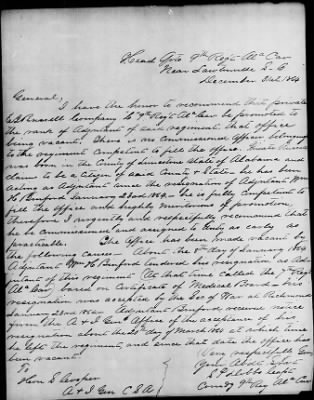 Head Qrs 9th Regt Ala Cav
Near S. C.
December 31st 1864
General,
I have the honor to recommend that private
Company "C" 9th Regt Ala Cav be promoted to
the rank of Adjutant of said regiment, that office
being vacant. There is no commissioned officer belonging
to the regiment competent to fill the office. Private
was born in the County of Limestone State of Alabama and
claims to be a citizen of said County & State, he has been
acting as Adjutant since the resignation of Adjutant Wm
H. Binford January 22nd 1864. He is fully competent to
fill the office and highly meritorious of promotion,
therefore I urgently and respectfully recommend that
he be commissioned and assigned to duty as early as
practicable. The office has been made vacant by
the following causes. About the day of January 1864
Adjutant Wm H. Binford tendered his resignation as Adju-
tant of this regiment at that time called the 7th Regt
Ala Cav, based on Certificate of Medical Board. His
resignation was accepted by the Sec of War at Richmond
January 22nd 1864. Adjutant Binford received notice
from the A & I Gen Office of the acceptance of his
resignation about the day of March 1864 at which time
he left the regiment, and since that date the office has
been vacant.
Very respectfully Gen
Your Obdt Servt
To
Gen S. Cooper
E. F. Dobbs Capt
A & I Gen C S A
Comdg 9th Reg Ala Cav